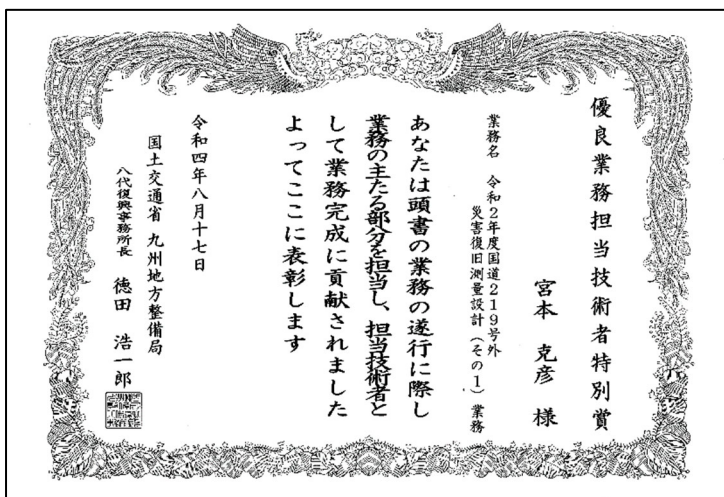 優良業務担当技術者特別賞
宮本 克彦 様
業務名 令和2年度国道219号外
災害復旧測量設計(その1)業務
あなたは頭書の業務の遂行に際し
業務の主たる部分を担当し、担当技術者と
して業務完成に貢献されました
よってここに表彰します
令和四年八月十七日
国土交通省 九州地方整備局
八代復興事務所長 徳田 浩一郎